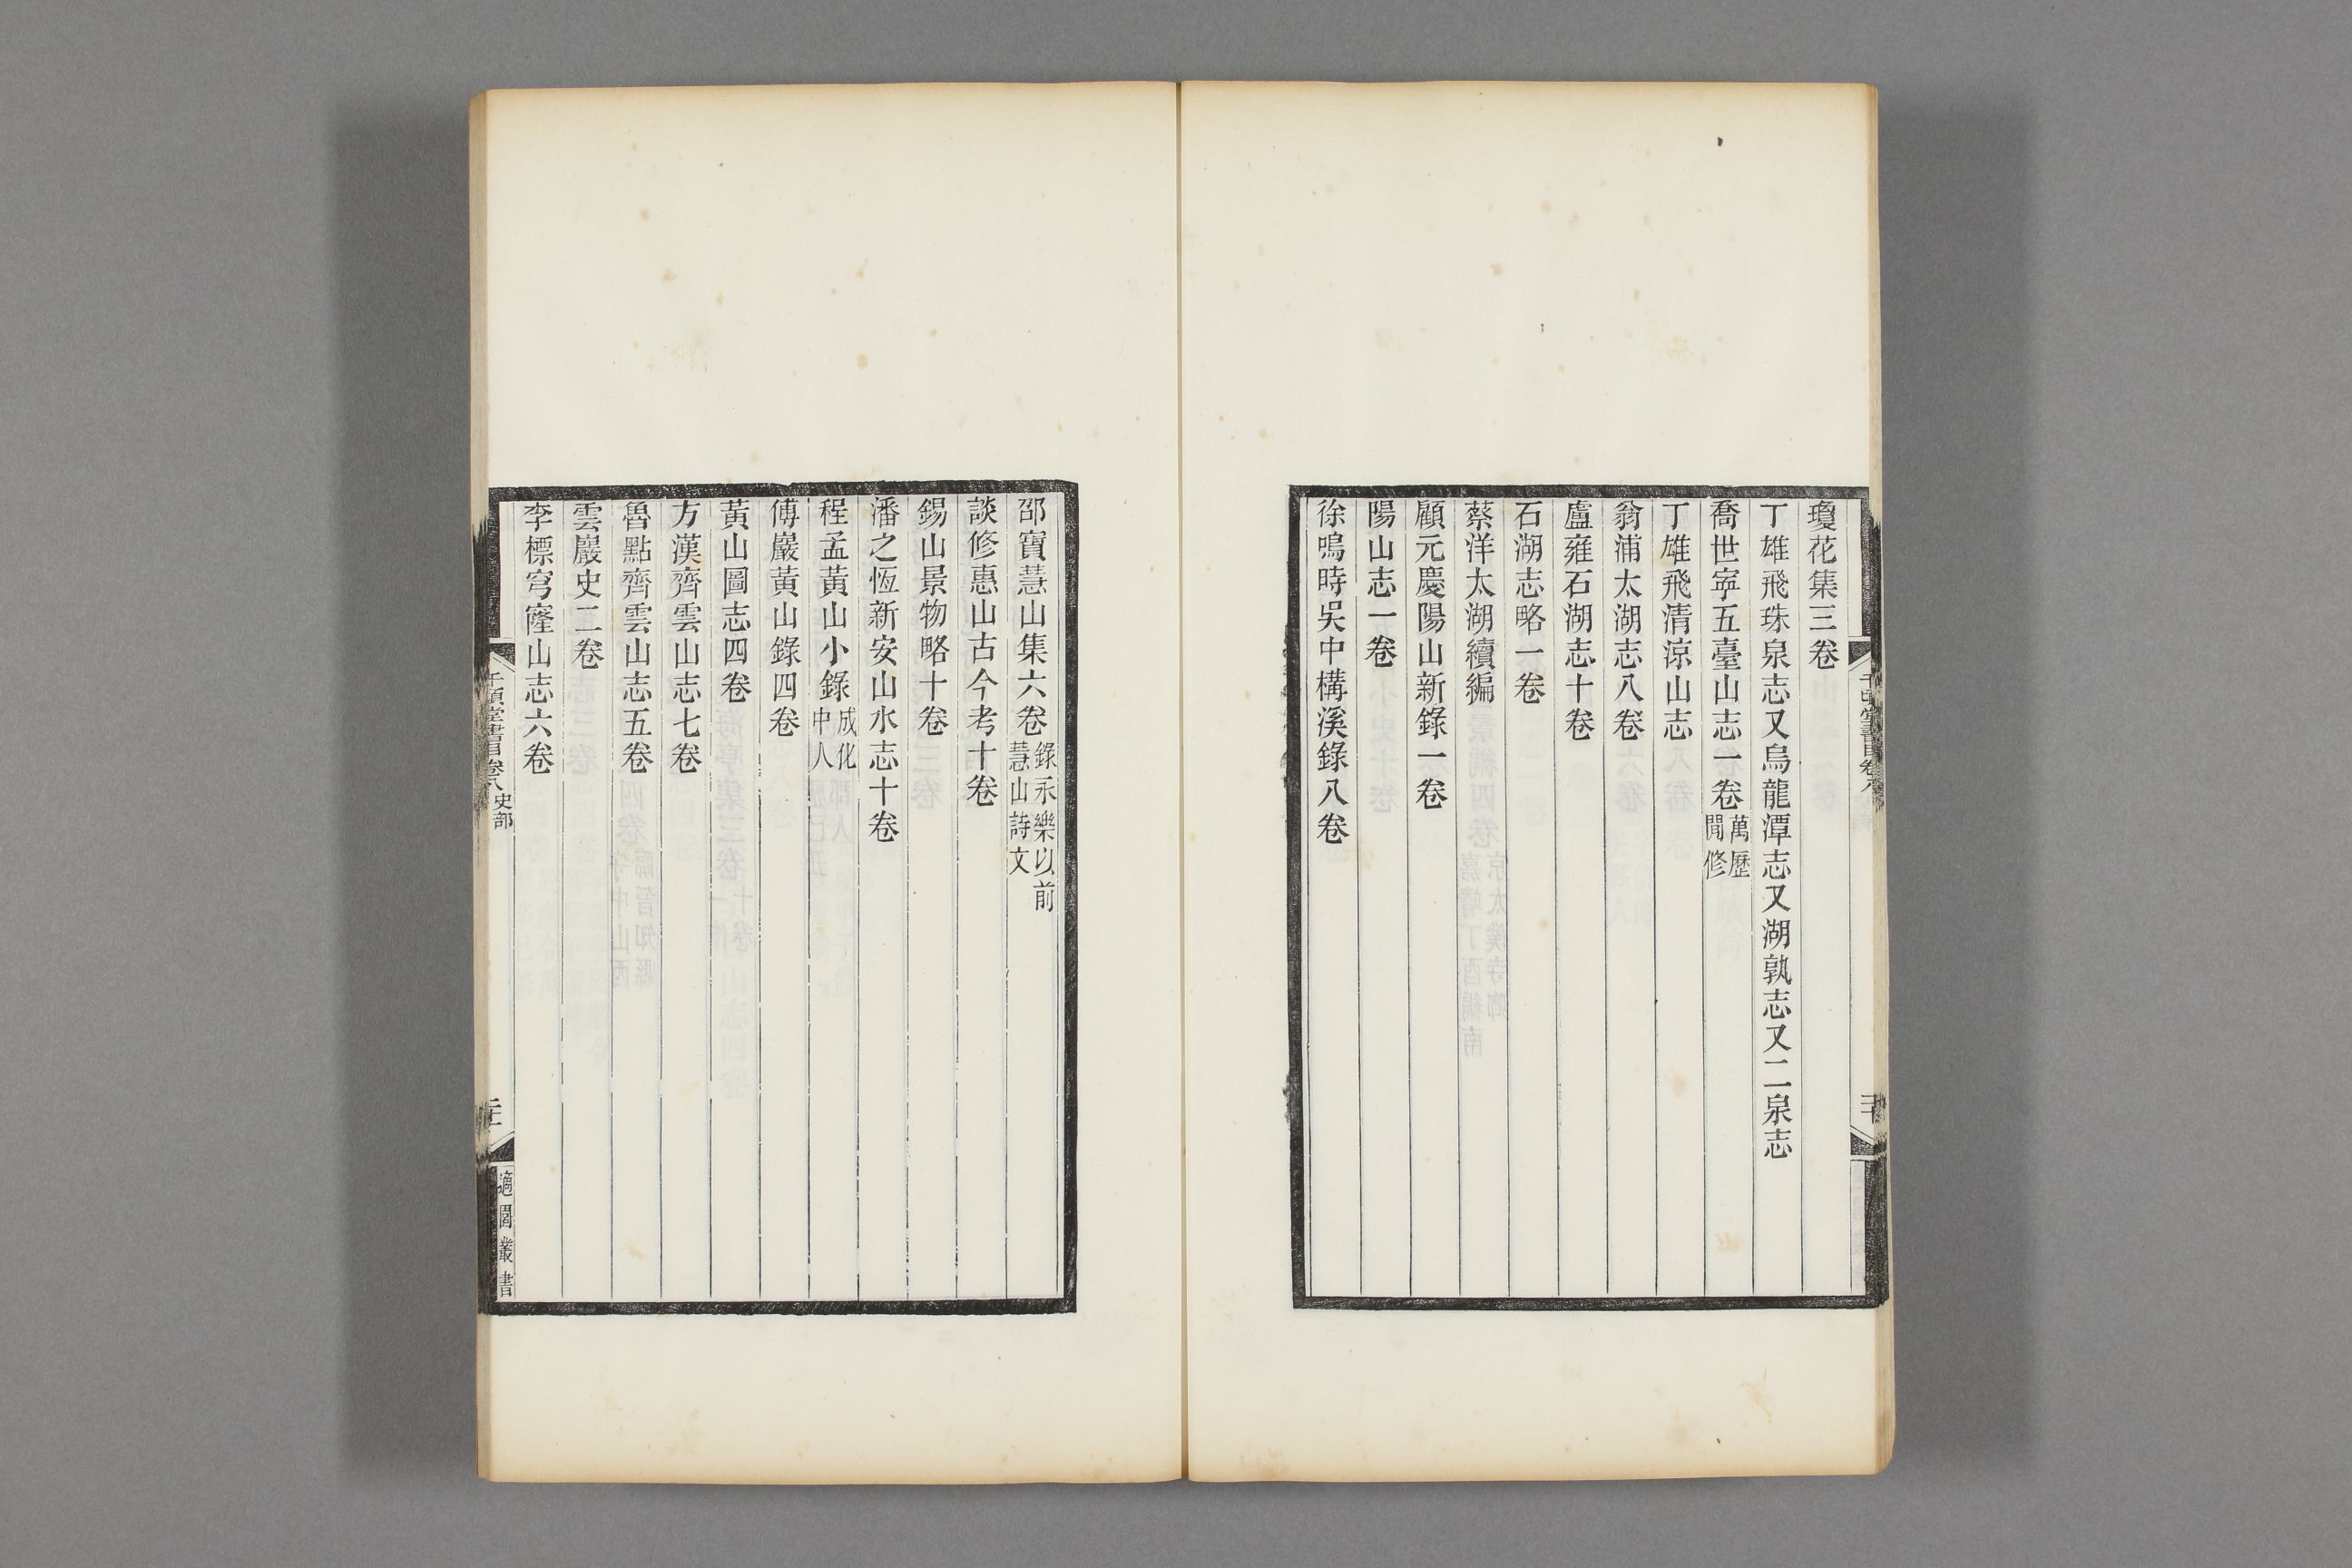 瓊花集三卷
丁雄飛珠泉志又烏龍潭志又湖孰志又二泉志
喬世寧五臺山志一卷萬歷閒修
丁雄飛清涼山志
翁浦太湖志八卷
盧雍石湖志十卷
石湖志略一卷
蔡洋太湖續編
顧元慶陽山新錄一卷
陽山志一卷
徐鳴時吳中橫溪錄八卷
邵寶慧山集六卷錄永樂以前慧山詩文
談修惠山古今考十卷
錫山景物略十卷
潘之恆新安山水志十卷
程孟黃山小錄成化中人
傅巖黃山錄四卷
黃山圖志四卷
方漢齊雲山志七卷
魯點齊雲山志五卷
雲巖史二卷
李標穹窿山志六卷
千頃堂書目卷八 史部
適園叢書